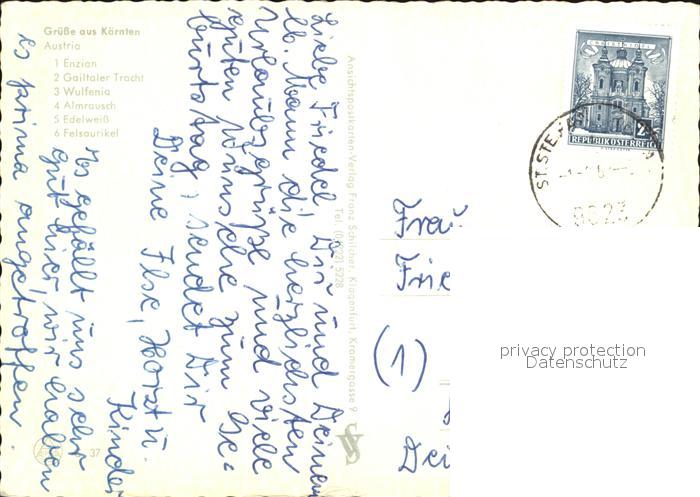 Grüße aus Kärnten
Austria
1 Enzian
2 Gailtaler Tracht
3 Wulfenia
4 Almrausch
5 Edelweiß
6 Felsaurikel
Liebe Friedel, Dir und Deinem
lb. Mann die herzlichsten
Urlaubsgrüße und viele
guten Wünsche zum Ge-
burtstag, sendet Dir
Deine Ilse, Horst u.
Kinder
Es gefällt uns sehr
gut hier, wir haben
es prima angetroffen.
37
Ansichtspostkarten-Verlag Franz Schilcher, Klagenfurt, Kramergasse 9
Tel. (04222) 5228
CHRISTKINDL
2
REPUBLIK ÖSTERREICH
ST. STE
9623
Frau
Frie
(1)
Dei
privacy protection
Datenschutz